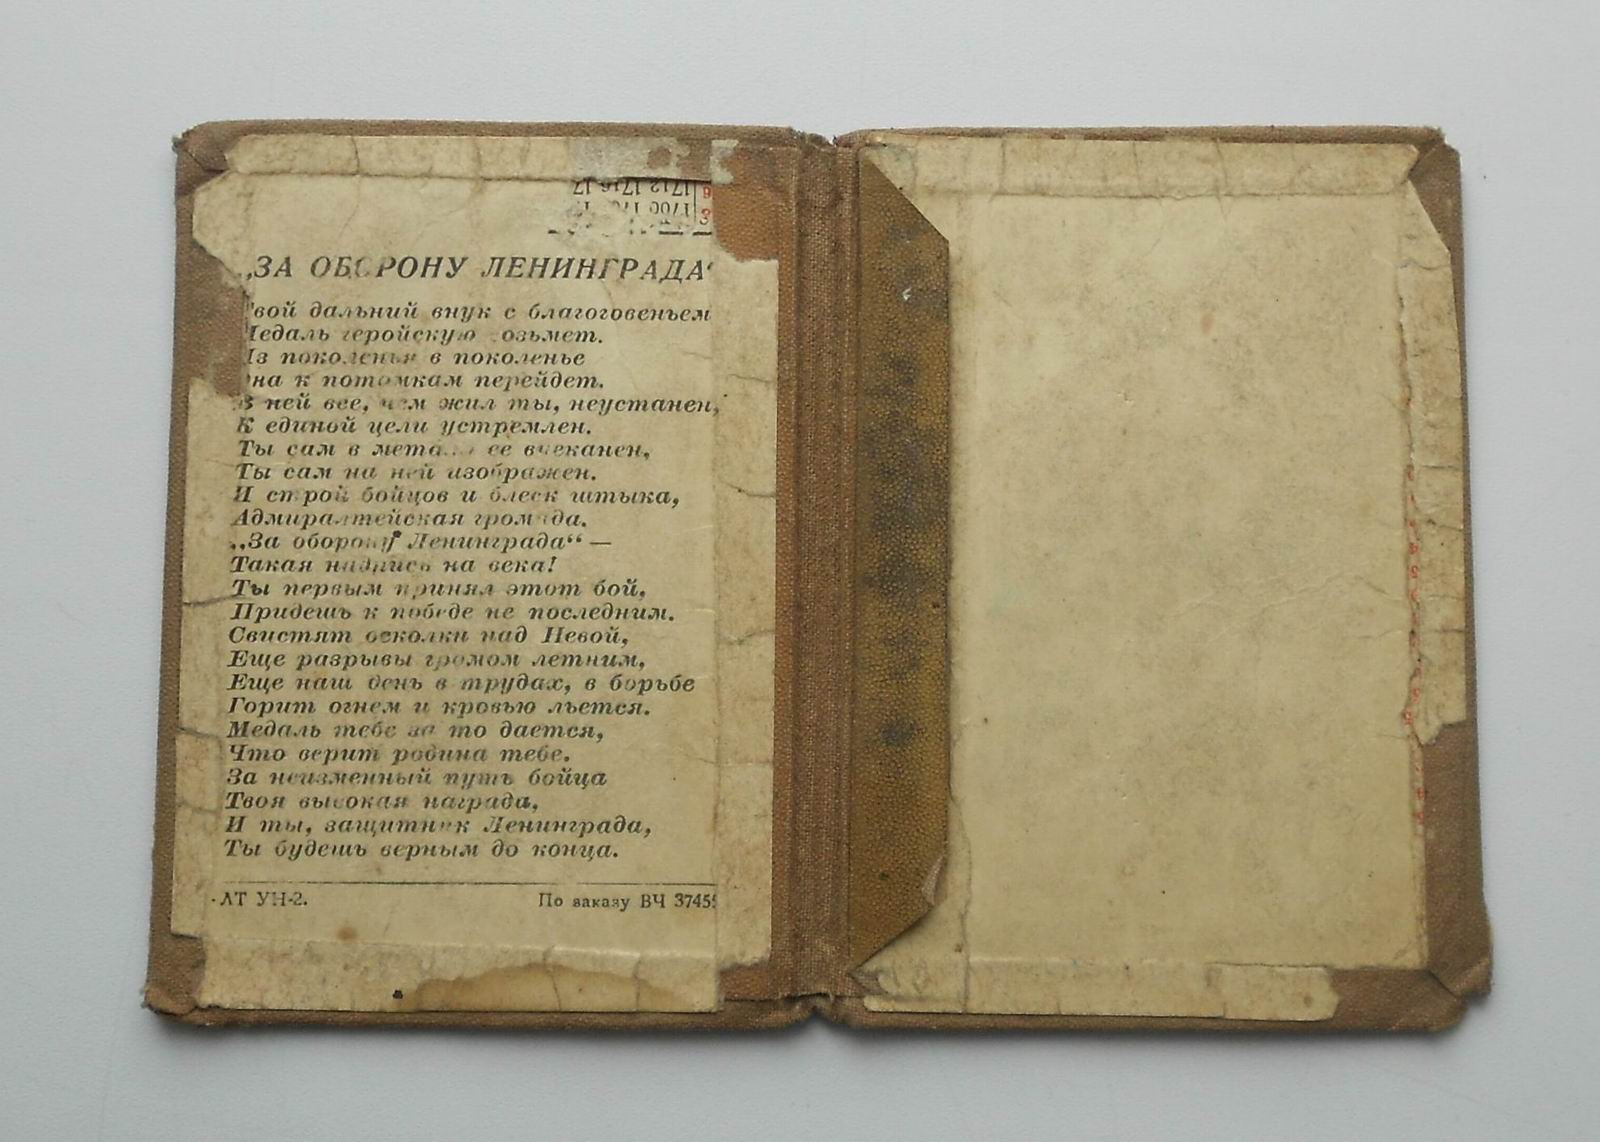 1712 1716 17
1706
6
3
„ЗА ОБОРОНУ ЛЕНИНГРАДА“
Твой дальний внук с благоговеньем
Медаль геройскую возьмет.
Из поколенья в поколенье
Она к потомкам перейдет.
В ней все, чем жил ты, неустанен,
К единой цели устремлен.
Ты сам в металл ее вчеканен,
Ты сам на ней изображен.
И строй бойцов и блеск штыка,
Адмиралтейская громада.
„За оборону Ленинграда“ —
Такая надпись на века!
Ты первым принял этот бой,
Придешь к победе не последним.
Свистят осколки над Невой,
Еще разрывы громом летним,
Еще наш день в трудах, в борьбе
Горит огнем и кровью льется.
Медаль тебе за то дается,
Что верит родина тебе.
За неизменный путь бойца
Твоя высокая награда,
И ты, защитник Ленинграда,
Ты будешь верным до конца.
ЛТ УН-2. По заказу ВЧ 3745